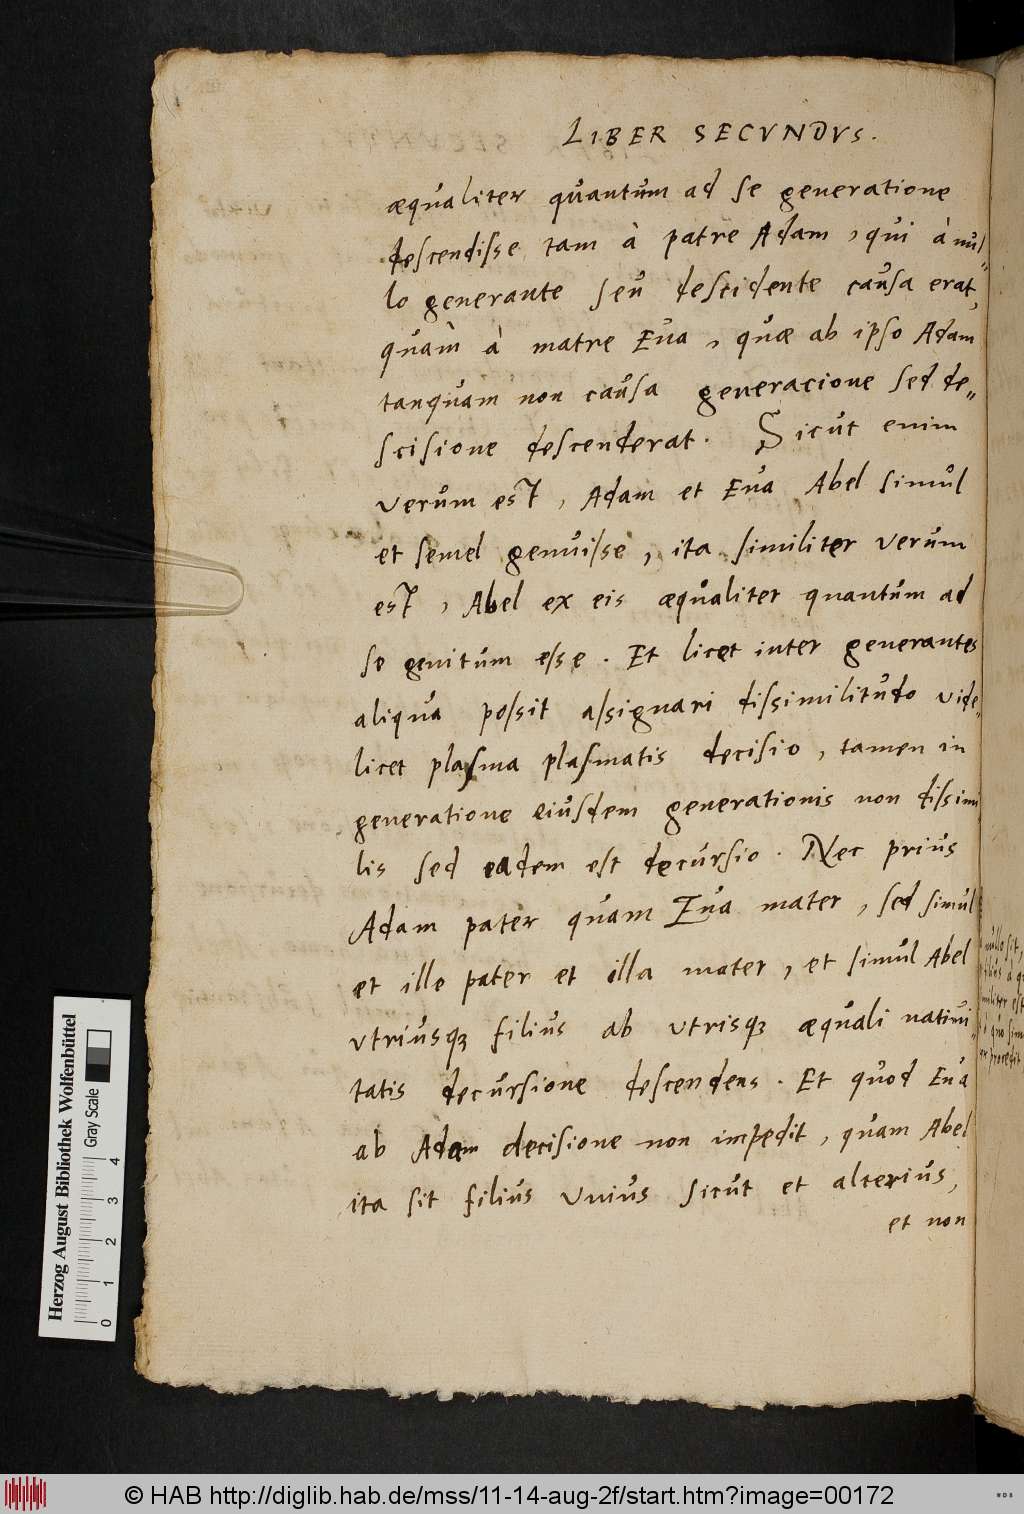 LIBER SECVNDVS.
æqualiter quantum ad se generatione
descendisse tam à patre Adam, qui à nul=
lo generante seu descidente causa erat,
quàm à matre Eua, quæ ab ipso Adam
tanquam non causa generacione sed de=
scisione descenderat. Sicut enim
verum est, Adam et Eua Abel simul
et semel genuisse, ita similiter verum
est, Abel ex eis æqualiter quantum ad
se genitum esse. Et licet inter generantes
aliqua possit assignari dissimilitudo vide=
licet plasma plasmatis decisio, tamen in
generatione eiusdem generationis non dissimi
lis sed eadem est decursio. Nec prius
Adam pater quam Eua mater, sed simul
et ille pater et illa mater, et simul Abel
vtriusqꝫ filius ab vtrisqꝫ æquali natiui=
tatis decursione descendens. Et quod Eua
ab Adam decisione non impedit, quam Abel
ita sit filius vnius sicut et alterius,
et non
nullo sit,
filius à
militer est
à quo sim
er procedit
Herzog August Bibliothek Wolfenbüttel
Gray Scale
0 1 2 3 4
© HAB http://diglib.hab.de/mss/11-14-aug-2f/start.htm?image=00172